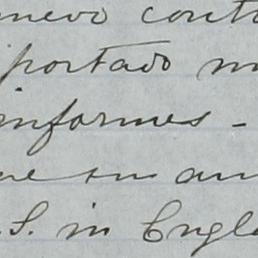 nuevo cont
portado m
informes -
ue su an
.S. in Engl